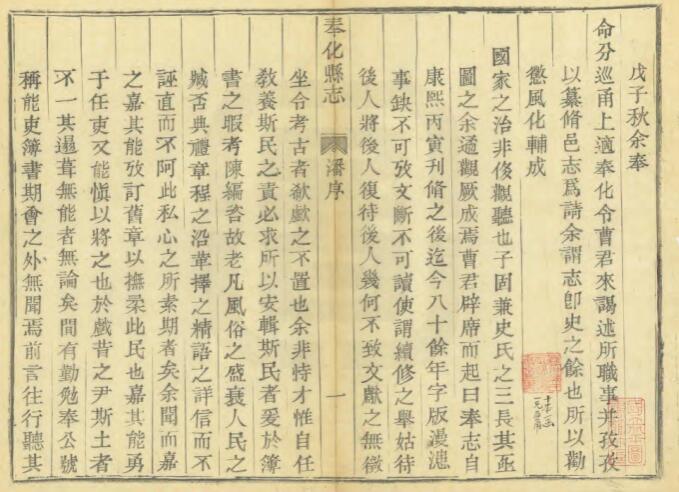 戊子秋余奉
命分巡甬上適奉化令曹君來謁述所職事并孜孜
以纂脩邑志爲請余謂志卽史之餘也所以勸
懲風化輔成
國家之治非侈觀聽也子固兼史氏之三長其亟
圖之余適觀厥成焉曹君辟席而起曰奉志自
康熙丙寅刊脩之後迄今八十餘年字版漫漶
事缺不可攷文斷不可讀使謂續修之舉姑待
後人將後人復待後人幾何不致文獻之無徵
奉化縣志
潘序
一
坐令考古者欷歔之不置也余非恃才惟自任
敎養斯民之責必求所以安輯斯民者爰於簿
書之暇考陳編咨故老凡風俗之盛衰人民之
臧否典禮章程之沿革擇之精語之詳信而不
誣直而不阿此私心之所素期者矣余聞而嘉
之嘉其能攷訂舊章以撫柔此民也嘉其能勇
于任吏又能愼以將之也於戲昔之尹斯土者
不一其選葺無能者無論矣間有勤勉奉公號
稱能吏簿書期會之外無聞焉前言往行聽其